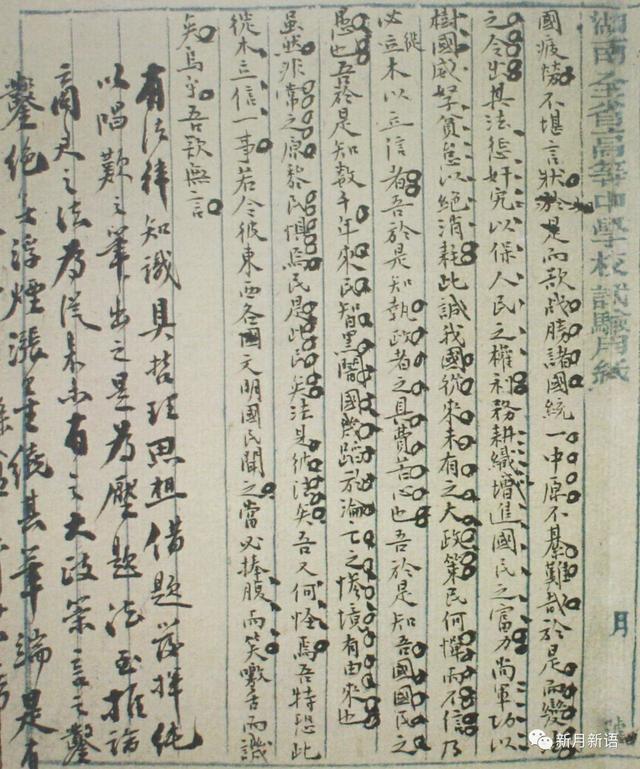 湖南全省高等中學校試驗用紙
月
國疲憊不堪言狀於是而欲戰勝諸國統一中原不綦難哉於是而變
之令出其法懲奸宄以保人民之權利務耕織增進國民之富力尚軍功以
樹國威孥貧怠以絕消耗此誠我國從來未有之大政策民何憚而不信乃
必徙立木以立信者吾於是知執政者之具費苦心也吾於是知吾國國民之
愚也吾於是知數千年來民智黑闇國幾蹈於淪亡之慘境有由來也
雖然非常之原黎民懼焉民是此民矣法是彼法矣吾又何怪焉吾特恐此
徙木立信一事若令彼東西各國文明國民聞之當必捧腹而笑噭舌而譏
矣烏乎吾欲無言
有法律知識具哲理思想借題發揮純
以唱歎之筆出之是為壓題法至推論
商君之法為從來未有之大政策言之鑿
鑿絕無浮煙漲墨繞其筆端是有
新月新语